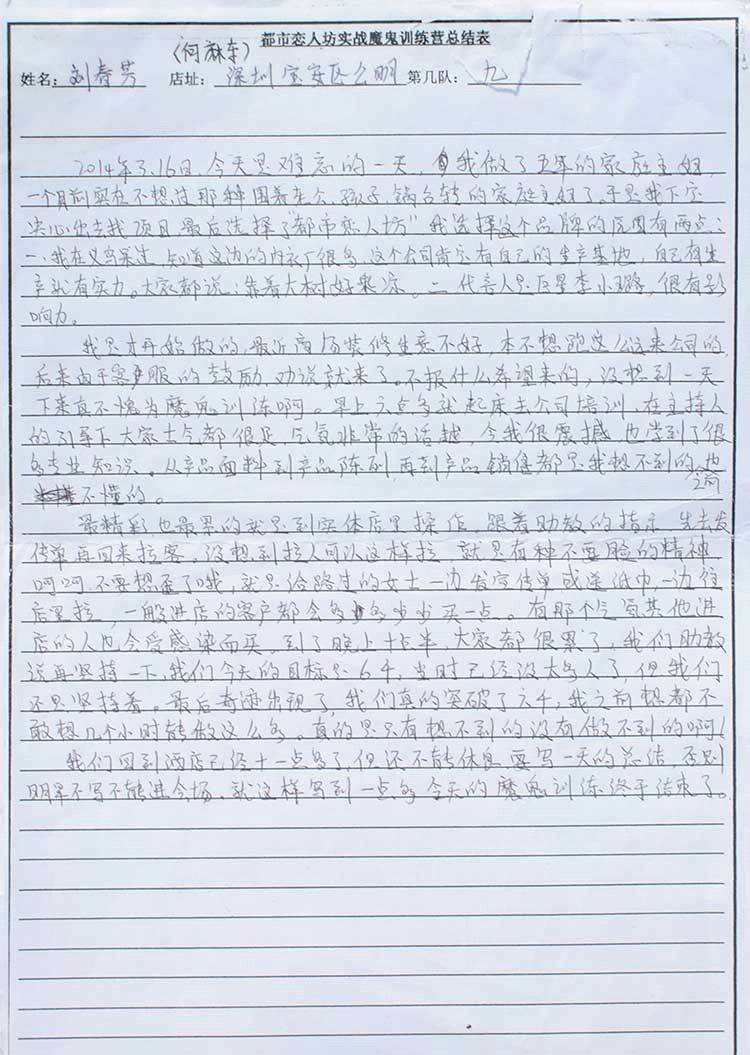 都市恋人坊实战魔鬼训练营总结表
(何麻东)
姓名: 刘春芳 店址: 深圳宝安区公明 第几队: 九
2014年3.16日,今天是难忘的一天,我做了五年的家庭主妇,
一个月前实在不想过那种围着老公、孩子、锅台转的家庭主妇了。于是我下定
决心出去找项目,最后选择了"都市恋人坊"我选择这个品牌的原因有两点:
一、我在义乌呆过,知道这边的内衣厂很多,这个公司肯定有自己的生产基地,自己有生
产就有实力。大家都说:靠着大树好乘凉。二 代言人是巨星李小璐,很有影
响力。
我是才开始做的,最近商场装修生意不好,本不想跑这么远来公司的,
后来由于客服的鼓励,劝说就来了。不报什么希望来的,没想到一天
下来真不愧为魔鬼训练啊。早上六点多就起床去公司培训,在主持人
的引导下大家士气都很足,气氛非常的活越,令我很震撼,也学到了很
多专业知识。从产品面料到产品陈列,再到产品销售都是我想不到的也
之前
不懂的。
最精彩也最累的就是到实体店里操作,跟着助教的指示,先去发
传单再回来拉客。没想到拉人可以这样拉,就是有种不要脸的精神
呵呵,不要想歪了哦,就是给路过的女士一边发宣传单或送纸巾,一边往
店里拉,一般进店的客户都会多多少少买一点。有那个气氛其他进
店的人也会受感染而买。到了晚上十点半,大家都很累了,我们助教
说再坚持一下,我们今天的目标是6千,当时已经没太多人了,但我们
还是坚持着。最后奇迹出现了,我们真的突破了六千,我之前想都不
敢想几个小时能做这么多。真的是只有想不到的没有做不到的啊!
我们回到酒店已经十一点多了,但还不能休息,要写一天的总结,否则
明早不写不能进会场,就这样写到一点多,今天的魔鬼训练终于结束了。